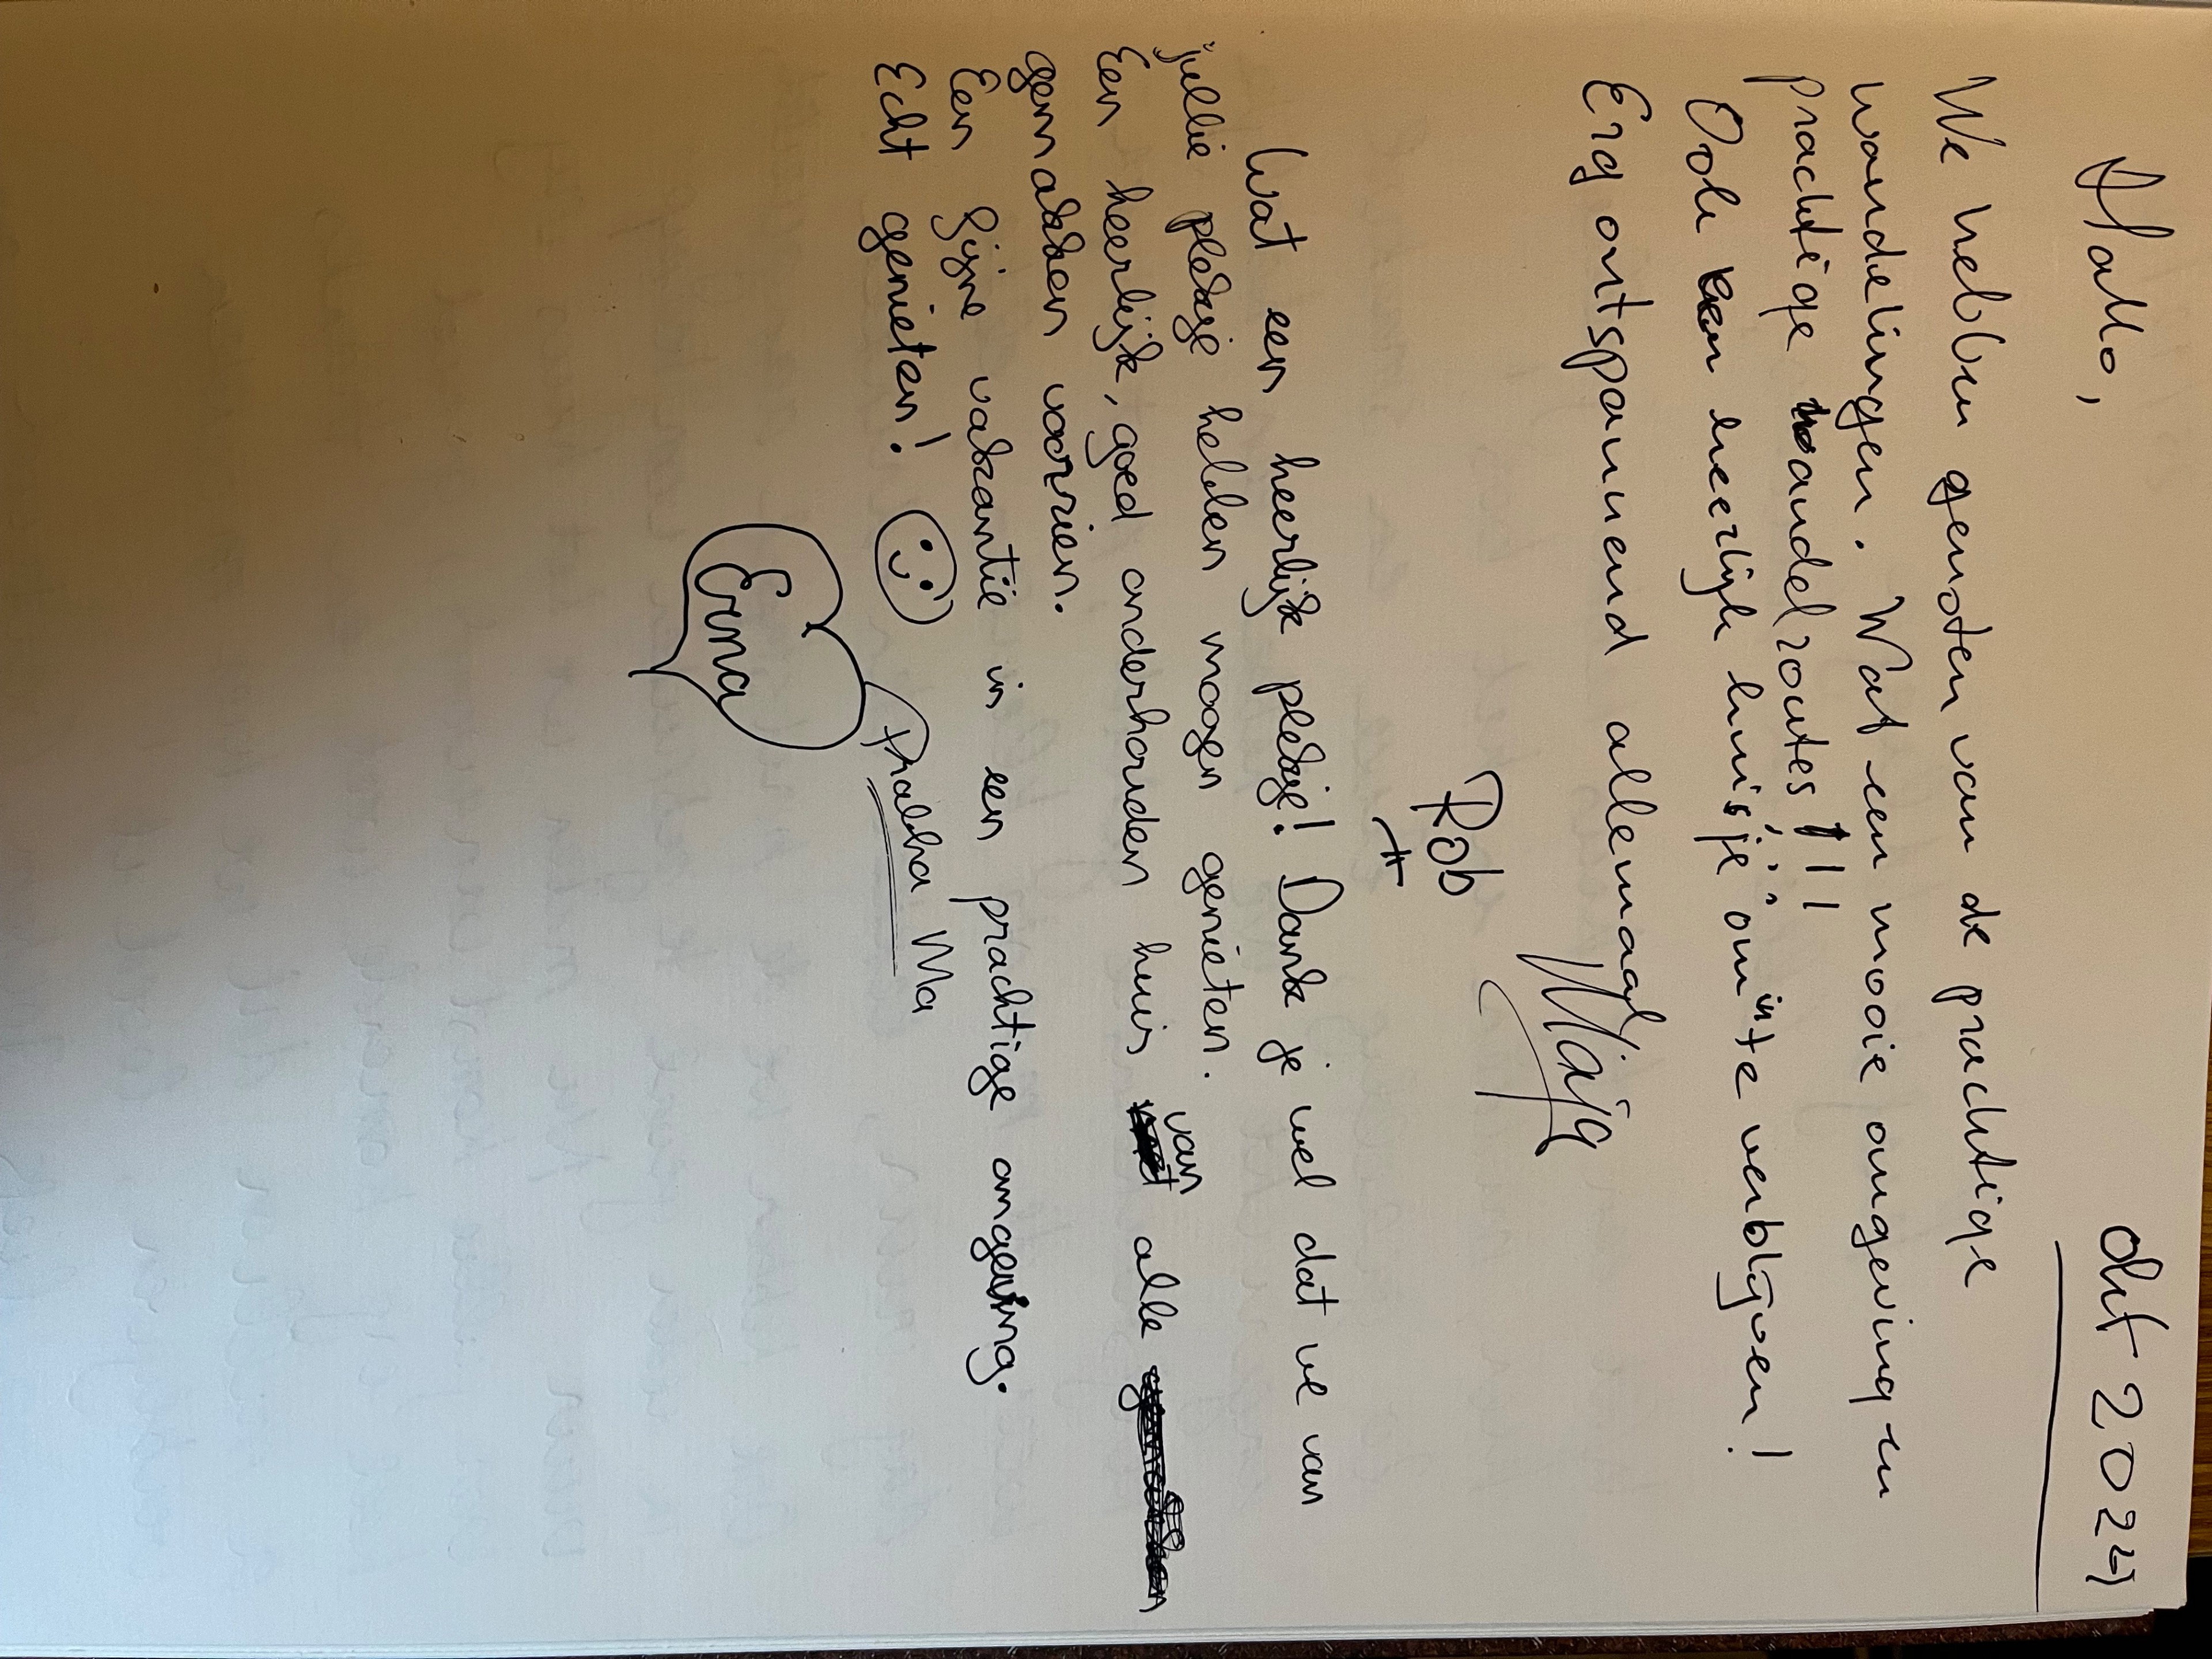 Okt 2024
Hallo,
We hebben genoten van de prachtige
wandelingen. Wat een mooie omgeving en
prachtige wandelroutes!!!
Ook een heerlijk huisje om in te verblijven!
Erg ontspannend allemaal
Maja
Rob
Wat een heerlijk plekje! Dank je wel dat we van
jullie plekje hebben mogen genieten.
Een heerlijk, goed onderhouden huis van alle
gemakken voorzien.
Een fijne vakantie in een prachtige omgeving.
Echt genieten!
Prabha Ma
Erma